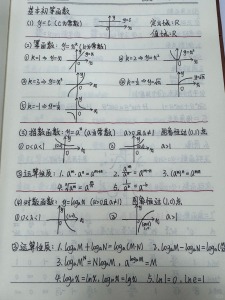 基本初等函数
(1) y=C (C为常数) y y=C 定义域:R
o x 值域:R
(2) 幂函数: y=xᵏ (k为常数)
① k=1 → y=x ② k=2 → y=x²
③ k=3 → y=x³ ④ k=½ → y=√x
⑤ k=-1 → y=1/x
(3) 指数函数: y=aˣ (a为常数) a>0且a≠1 图象恒过(0,1)点
① 0<a<1 ② a>1
③运算性质: 1. aᵐ·aⁿ=aᵐ⁺ⁿ 2. aᵐ/aⁿ=aᵐ⁻ⁿ 3. (aᵐ)ⁿ=aᵐⁿ
(4) 对数函数: y=logₐx (a>0且a≠1) 图象恒过(1,0)
① 0<a<1 ② a>1
③运算性质: 1. logₐM+logₐN=logₐ(M·N) 2. logₐM-logₐN=logₐ
3. logₐMᴺ=NlogₐM, a^(logₐM)=M
4. logₑx=lnx, log₁₀x=lgx 5. ln1=0, lne=1